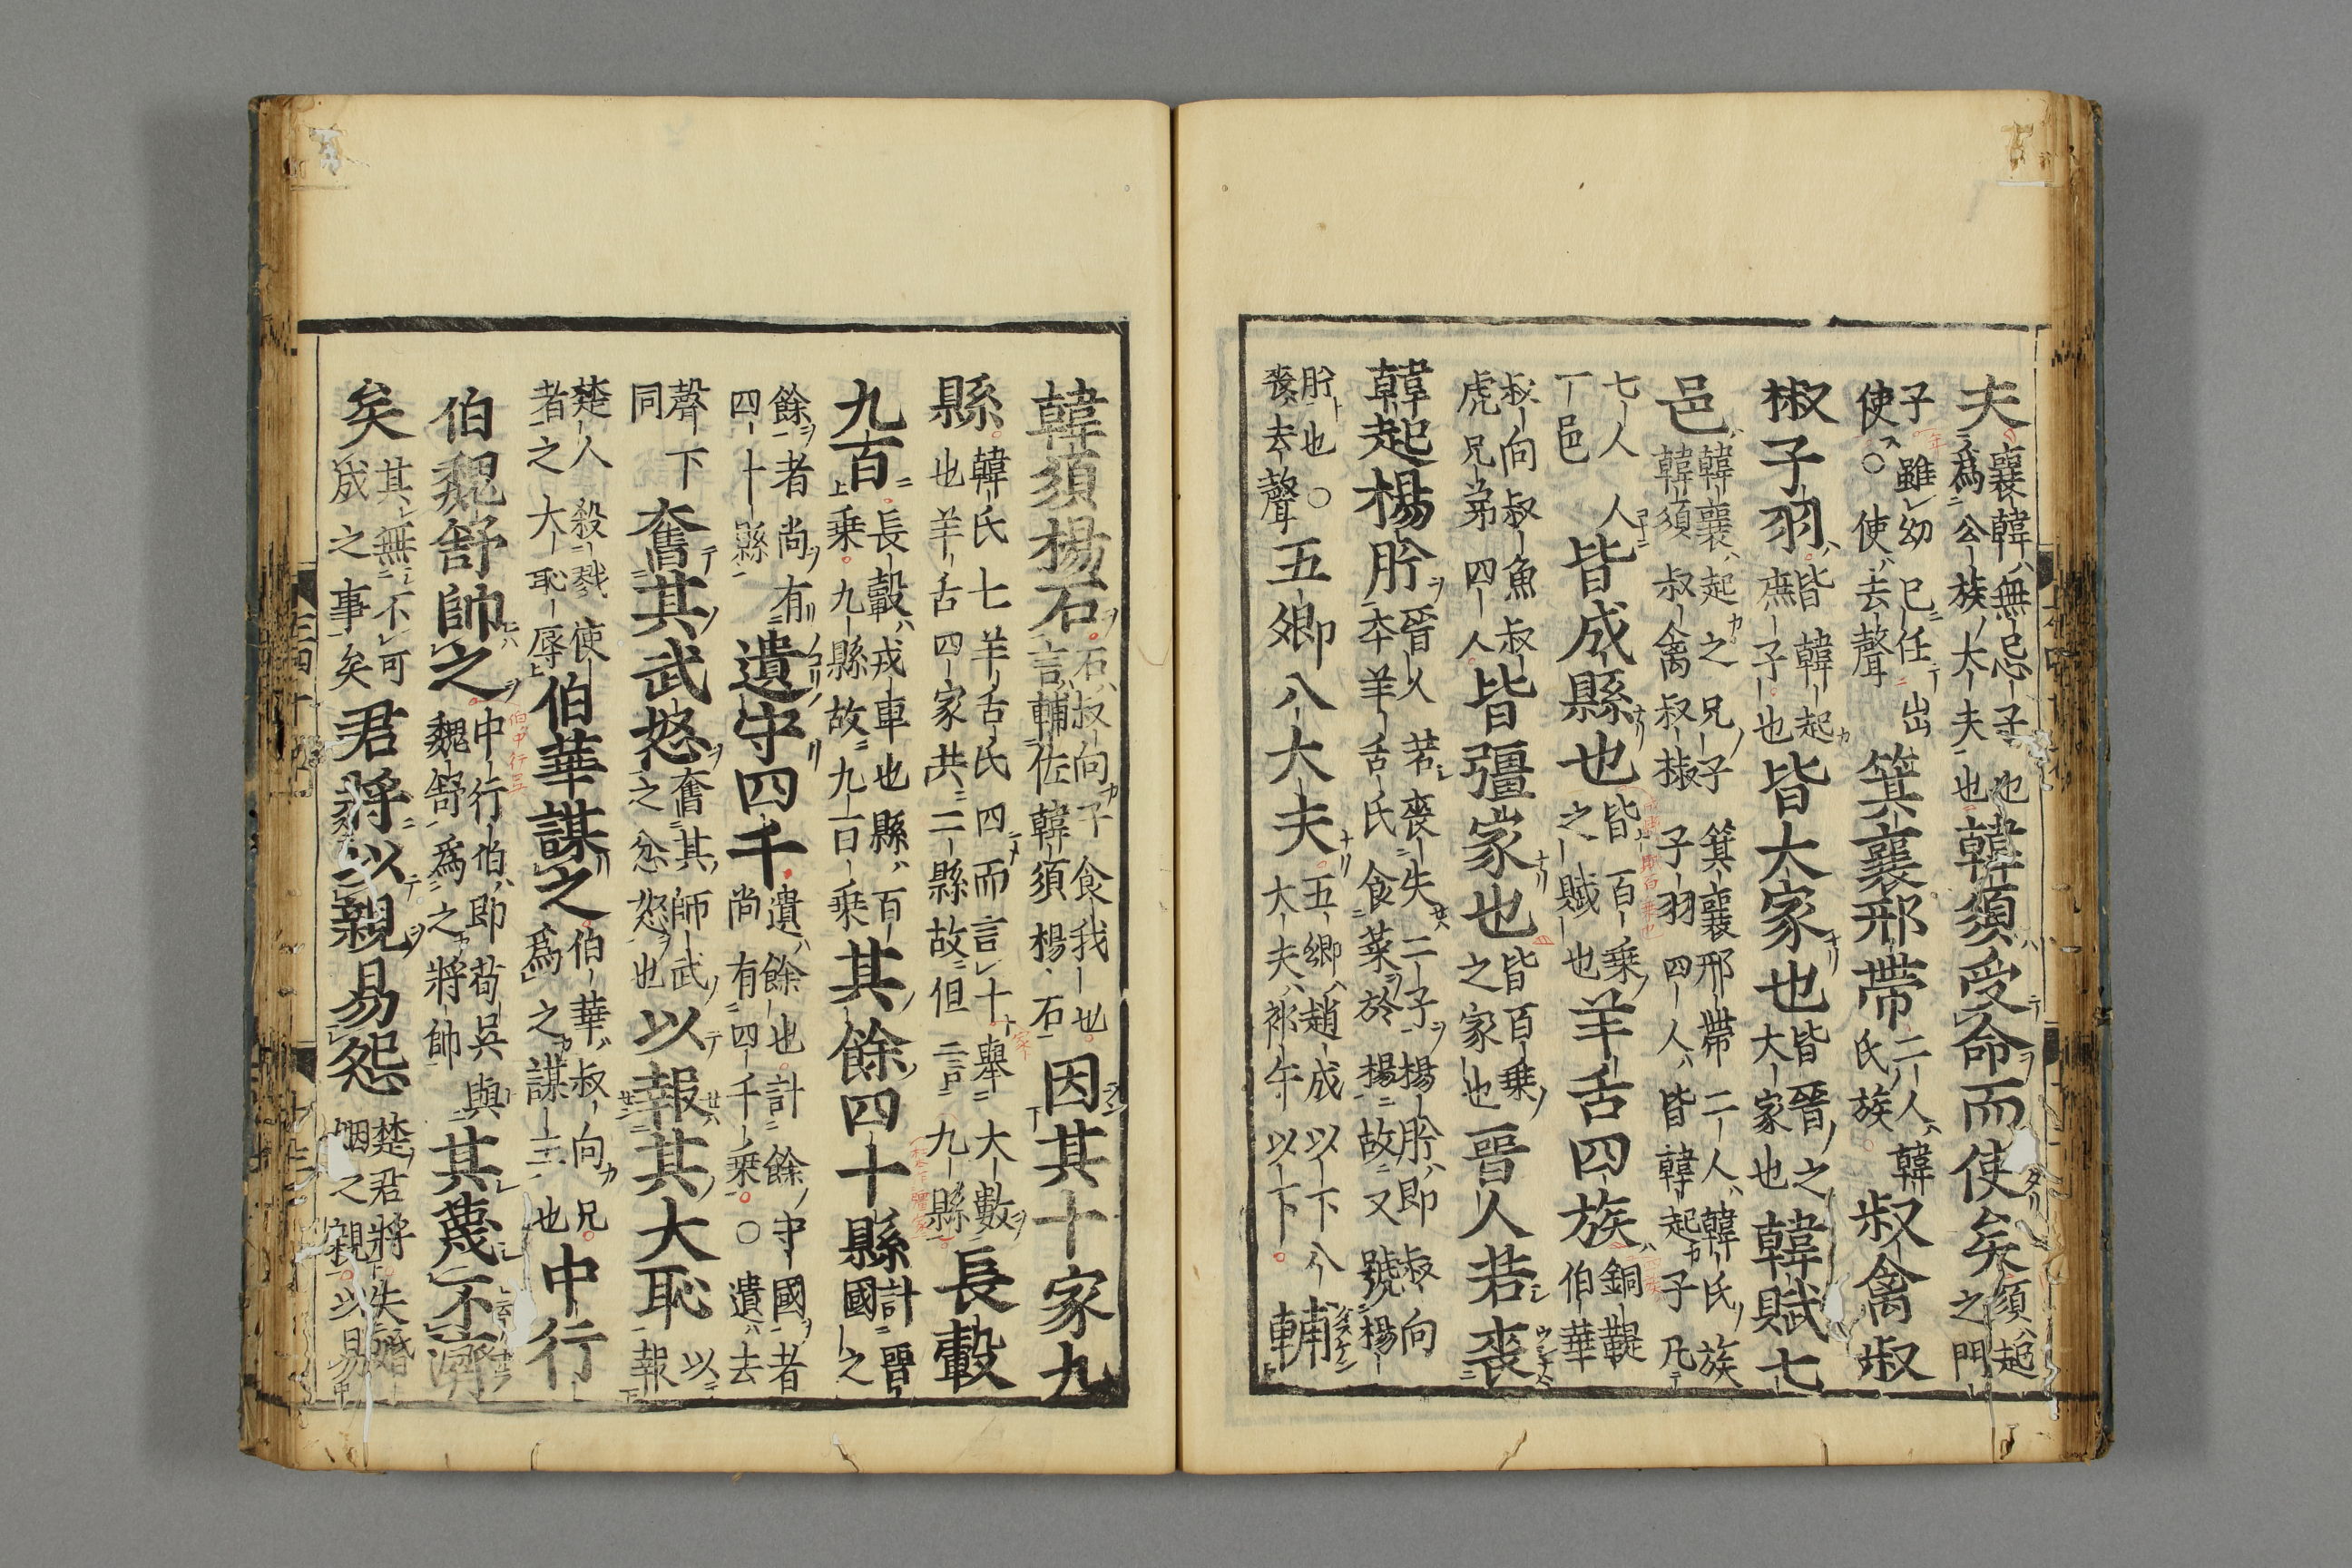 夫襄韓無忌子也爲公族大夫也韓須受命而使矣須起之門
子雖幼已任出使○使去聲箕襄邢帶二人韓氏族叔禽叔
椒子羽皆韓起庶子也皆大家也皆晉之大家也韓賦七
邑韓襄起之兄子箕襄邢帶二人韓氏族韓須叔禽叔椒子羽四人皆韓起子凡
七人人一邑皆成縣也皆百乗之賦也羊舌四族銅鞮伯華
叔向叔魚叔虎兄弟四人皆彊家也皆百乗之家也晉人若喪
韓起楊肸晉人若喪失二子楊肸即叔向本羊舌氏食菜於楊故又號楊
肸也○喪去聲五卿八大夫五卿趙成以下八大夫祁午以下輔
韓須楊石石叔向子食我也言輔佐韓須楊石因其十家九
縣韓氏七羊舌氏四而言十舉大數也羊舌四家共二縣故但言九縣長轂
九百長轂戎車也縣百乗九縣故九百乗其餘四十縣計晉國之
餘者尚有四十縣遺守四千遺餘也計餘守國者尚有四千乗○遺去
聲下同奮其武怒奮其師武之忿怒也以報其大恥以報
楚人殺戮使者之大恥辱伯華謀之伯華叔向兄爲之謀主也中行
伯魏舒帥之中行伯即荀吳與魏舒爲之將帥其蔑不濟
矣其無不可成之事矣君將以親易怨楚君將失婚姻之親以易